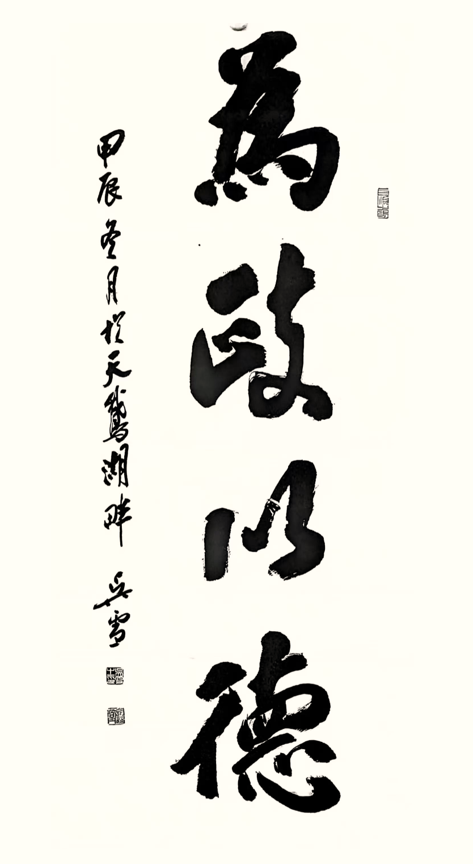 為政以德
甲辰冬月於天鵝湖畔 吳雪